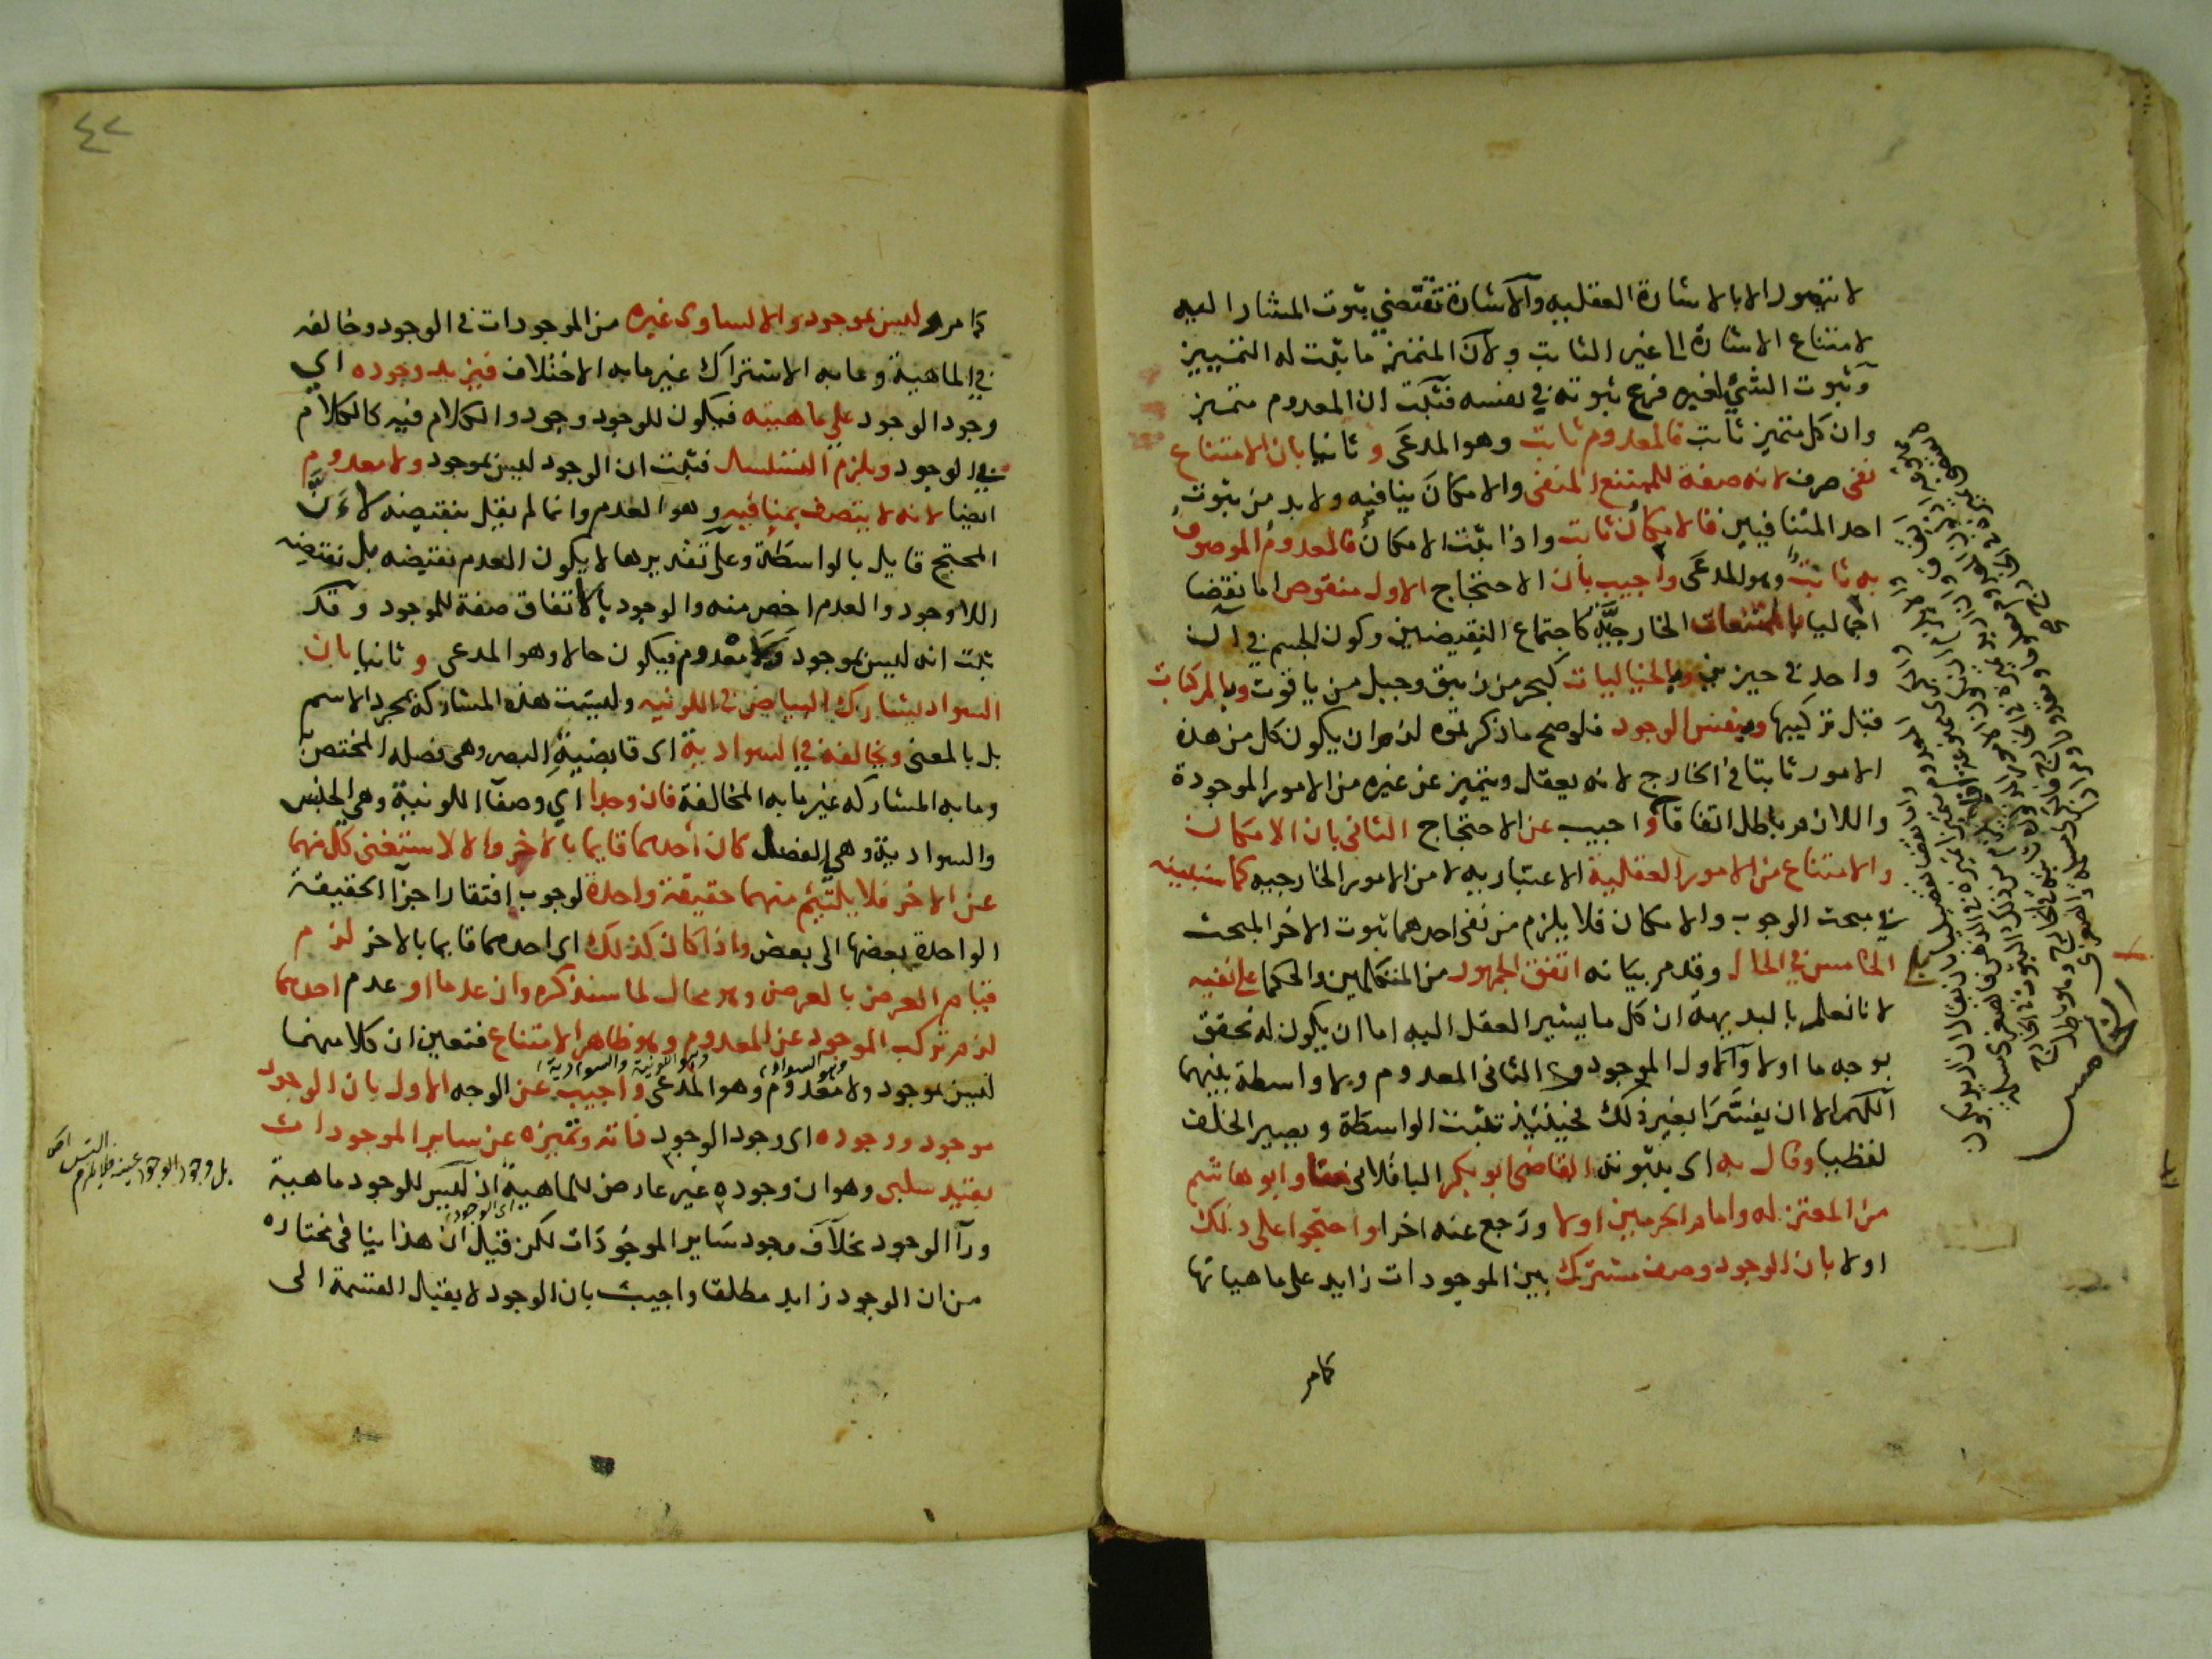 لا تتصور الا بالاشارة العقلية والاشارة تقتضي ثبوت المشار اليه
لامتناع الاشارة الى غير الثابت ولان المتميز ما ثبت له التمييز
وثبوت الشيء لغيره فرع ثبوته في نفسه فثبت ان المعدوم متميز
وان كل متميز ثابت فالمعدوم ثابت وهو المدعى و ثانيا بان الامتناع
نفى صرف لانه صفة للممتنع المنفى والامكان ينافيه ولا بد من ثبوت
احد المتنافيين فالامكان ثابت واذا ثبت الامكان فالمعدوم الموصوف
به ثابت وهو المدعى واجيب بان الاحتجاج الاول منقوص اما نقضا
اجماليا بالممتنعات الخارجية كاجتماع النقيضين وكون الجسم في آن
واحد في حيزين وبالخياليات كبحر من زيبق وجبل من ياقوت وبالمركبات
قبل تركيبها وبنفس الوجود فلو صح ما ذكرتموه لزم ان يكون كل من هذه
الامور ثابتا في الخارج لانه يعقل ويتميز عن غيره من الامور الموجودة
واللازم باطل اتفاقا واجيب عن الاحتجاج الثانى بان الامكان
والامتناع من الامور العقلية الاعتباريه لا من الامور الخارجيه كما سنبينه
في مبحث الوجوب والامكان فلا يلزم من نفى احدهما ثبوت الاخر المبحث
الخامس في الحال وقدم بيانه اتفق الجمهور من المتكلمين والحكما على نفيه
لانا نعلم بالبديهة ان كل ما يشير العقل اليه اما ان يكون له تحقق
بوجه ما اولا والاول الموجود و الثانى المعدوم ولا واسطة بينهما
اللهم الا ان يفسرا بغير ذلك فحينئذ تثبت الواسطة ويصير الخلف
لفظيا وقال به اى بثبوته القاضى ابو بكر الباقلانى منا وابو هاشم
من المعتزله وامام الحرمين اولا ورجع عنه اخرا واحتجوا على ذلك
اولا بان الوجود وصف مشترك بين الموجودات زايد على ماهياتها
كما مر
٤٢
كما مر وليس بموجود والا لساوى غيره من الموجودات في الوجود وخالفه
في الماهية وما به الاشتراك غير ما به الاختلاف فيزيد وجوده اي
وجود الوجود على ماهيته فيكون للوجود وجود والكلام فيه كالكلام
في الوجود ويلزم التسلسل فثبت ان الوجود ليس بموجود ولا معدوم
ايضا لانه لا يتصف بمنافيه وهو العدم وانما لم يقل بنقيضه لان
المحتج قايل بالواسطة وعلى تقديرها لا يكون العدم نقيضه بل نقيضه
اللاوجود والعدم اخص منه والوجود بالاتفاق صفة للموجود وقد
ثبت انه ليس بموجود ولا معدوم فيكون حالا وهو المدعى و ثانيا بان
السواد يشارك البياض في اللونيه وليست هذه المشاركة بمجرد الاسم
بل بالمعنى ويخالفه في السوادية اى قابضية البصر وهى فصله المختص
وما به المشاركه غير ما به المخالفة فان وجدا اي وصفا اللونية وهي الجنس
والسوادية وهي الفصل كان احدهما قايما بالاخر والا لاستغنى كل منهما
عن الاخر فلا يلتئم منهما حقيقة واحدة لوجوب افتقار اجزآ الحقيقة
الواحدة بعضها الى بعض واذا كان كذلك اى احدهما قايما بالاخر لزم
قيام العرض بالعرض وهو محال لما سنذكره وان عدما او عدم احدهما
لزم تركب الموجود عن المعدوم وهو ظاهر الامتناع فتعين ان كلا منهما
وهو السواد وهو اللونية والسوادية
ليس بموجود ولا معدوم وهو المدعى واجيب عن الوجه الاول بان الوجود
موجود ووجوده اى وجود الوجود ذاته وتميزه عن ساير الموجودات
بقيد سلبى وهو ان وجوده غير عارض للماهية اذ ليس للوجود ماهية
اى الوجود
ورآ الوجود بخلاف وجود ساير الموجودات لكن قيل ان هذا ينافى مختاره
من ان الوجود زايد مطلقا واجيب بان الوجود لا يقبل القسمة الى
بل وجود الوجود عينه فلا يلزم التس